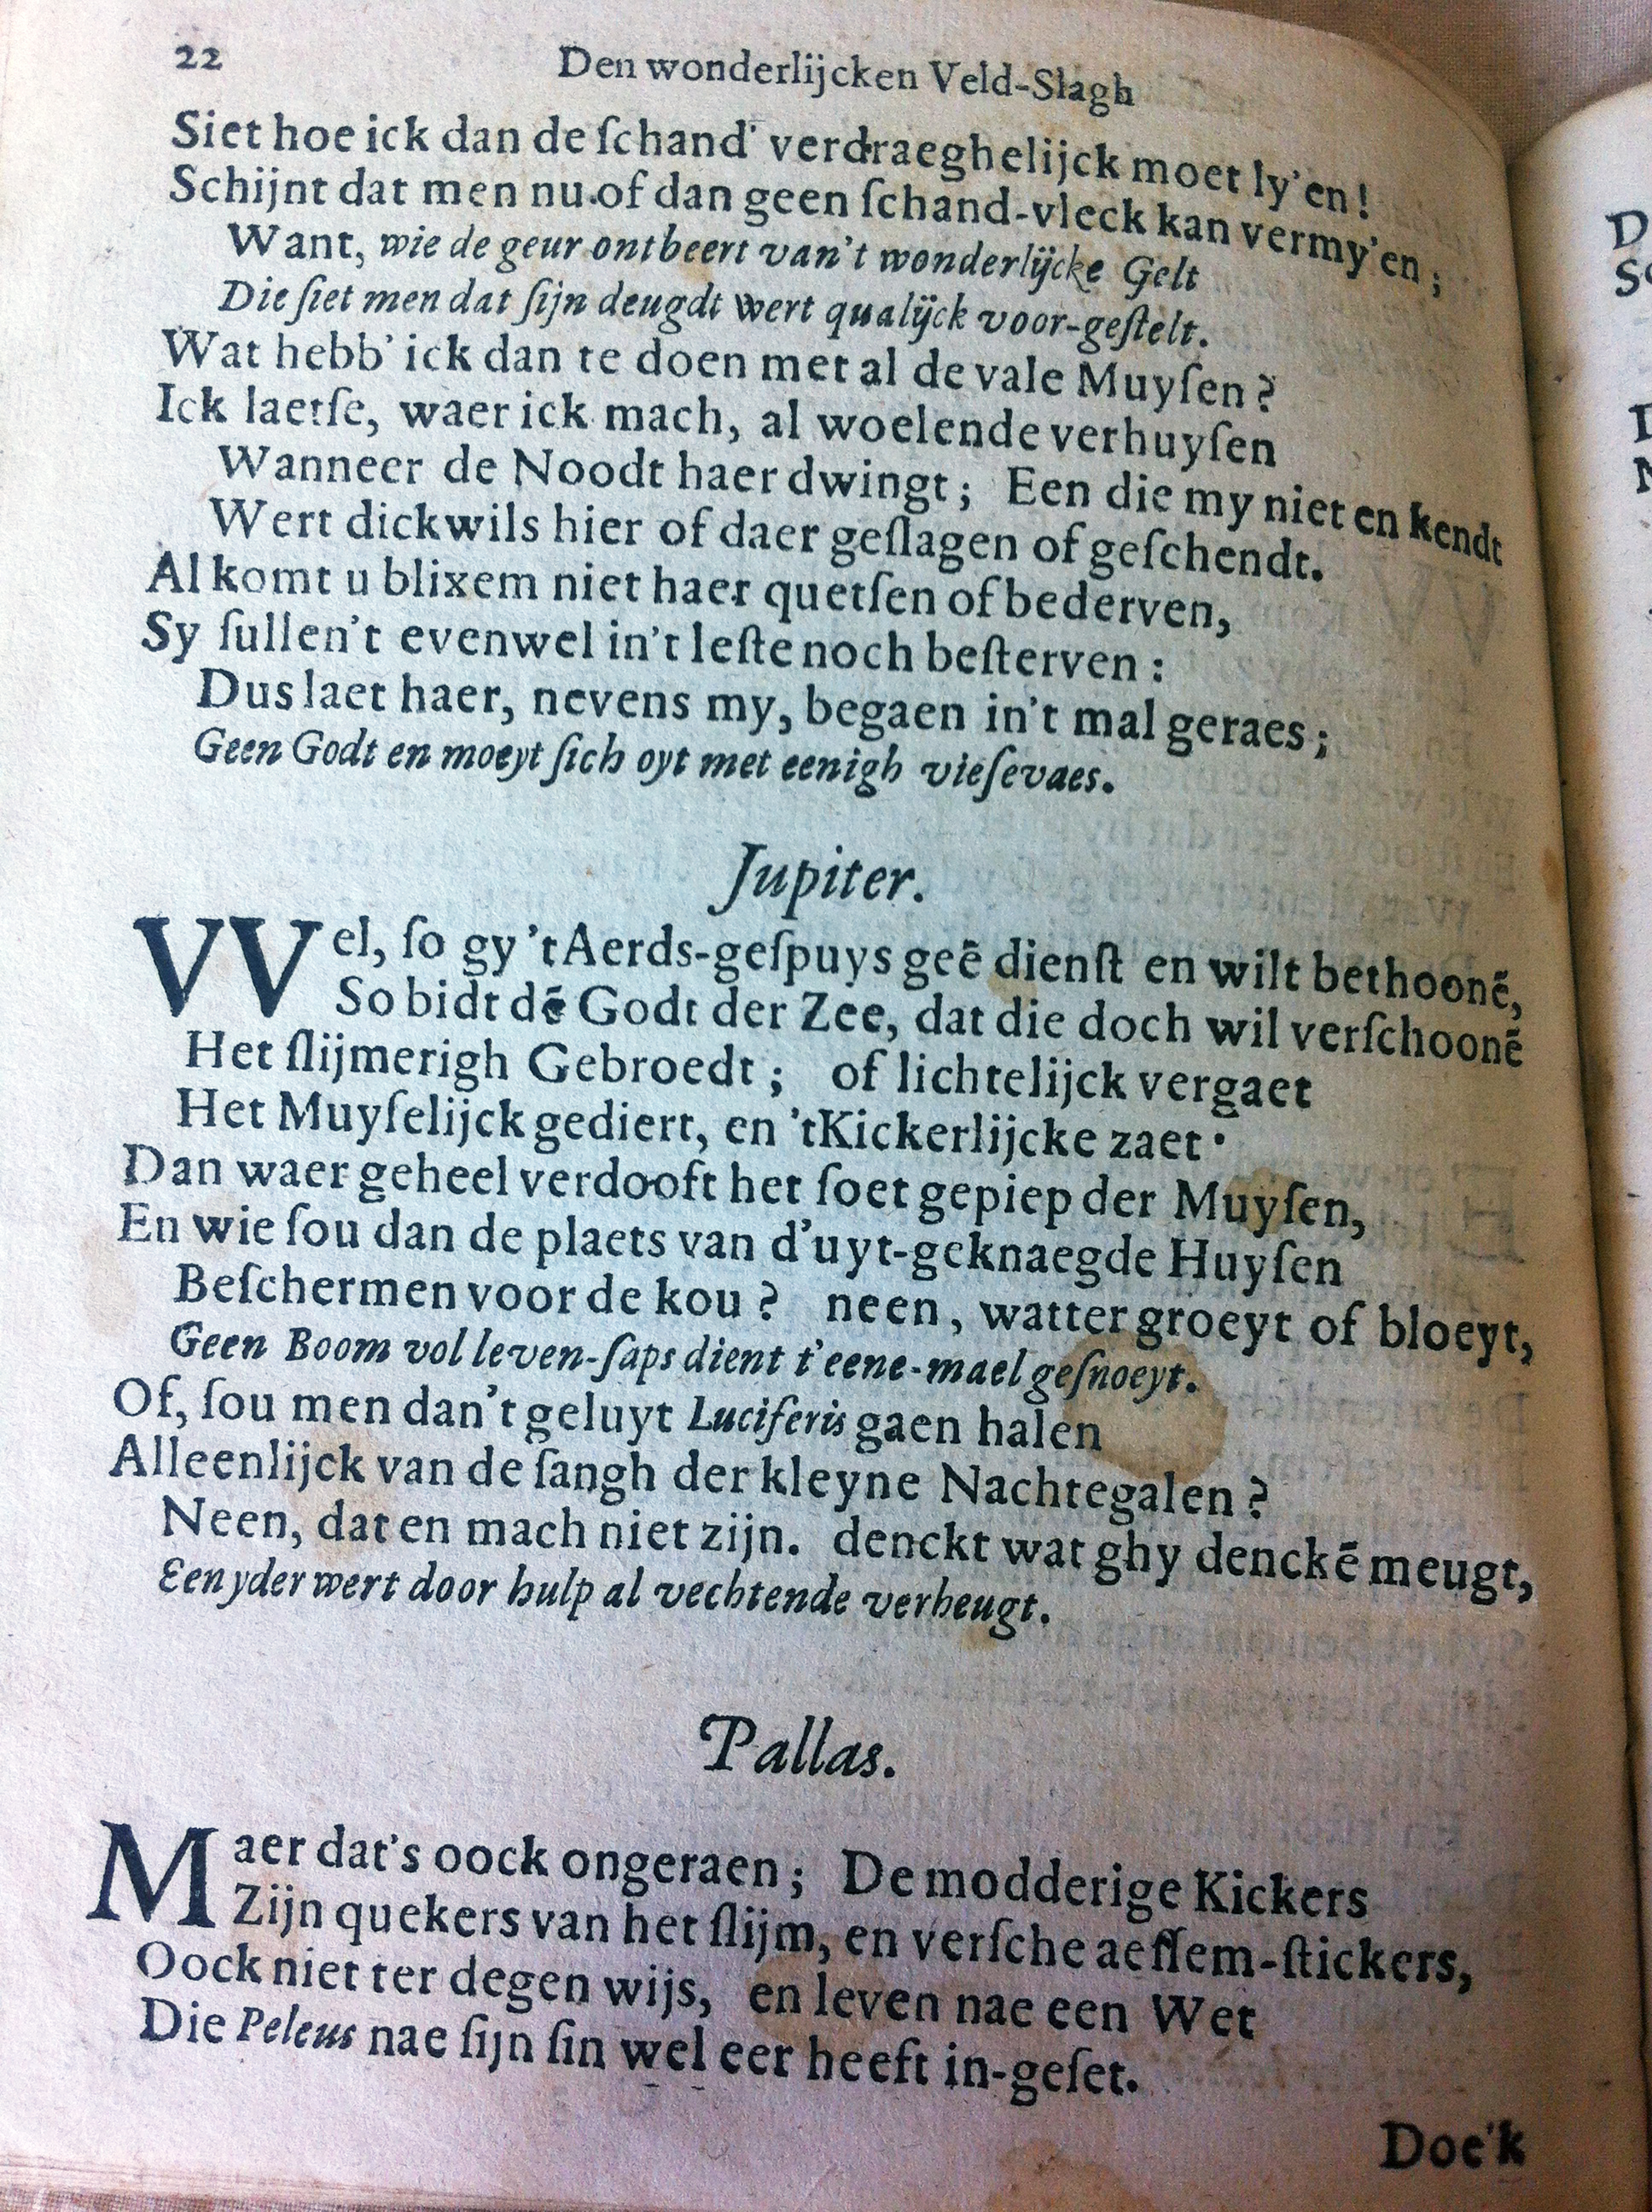 22 Den wonderlijcken Veld-Slagh
Siet hoe ick dan de ſchand' verdraeghelijck moet ly'en!
Schijnt dat men nu of dan geen ſchand-vleck kan vermy'en;
Want, wie de geur ontbeert van't wonderlijcke Gelt
Die ſiet men dat ſijn deugdt wert qualijck voor-geſtelt.
Wat hebb' ick dan te doen met al de vale Muyſen?
Ick laetſe, waer ick mach, al woelende verhuyſen
Wanneer de Noodt haer dwingt; Een die my niet en kendt
Wert dickwils hier of daer geſlagen of geſchendt.
Al komt u blixem niet haer quetſen of bederven,
Sy ſullen't evenwel in't leſte noch beſterven:
Dus laet haer, nevens my, begaen in't mal geraes;
Geen Godt en moeyt ſich oyt met eenigh vieſevaes.
Jupiter.
VVel, ſo gy 't Aerds-geſpuys geē dienſt en wilt bethoonē,
So bidt dē Godt der Zee, dat die doch wil verſchoonē
Het ſlijmerigh Gebroedt; of lichtelijck vergaet
Het Muyſelijck gediert, en 't Kickerlijcke zaet·
Dan waer geheel verdooft het ſoet gepiep der Muyſen,
En wie ſou dan de plaets van d'uyt-geknaegde Huyſen
Beſchermen voor de kou? neen, watter groeyt of bloeyt,
Geen Boom vol leven-ſaps dient t'eene-mael geſnoeyt.
Of, ſou men dan't geluyt Luciferis gaen halen
Alleenlijck van de ſangh der kleyne Nachtegalen?
Neen, dat en mach niet zijn. denckt wat ghy denckē meugt,
Een yder wert door hulp al vechtende verheugt.
Pallas.
Maer dat's oock ongeraen; De modderige Kickers
Zijn quekers van het ſlijm, en verſche aeſſem-ſtickers,
Oock niet ter degen wijs, en leven nae een Wet
Die Peleus nae ſijn ſin wel eer heeft in-geſet.
Doe'k